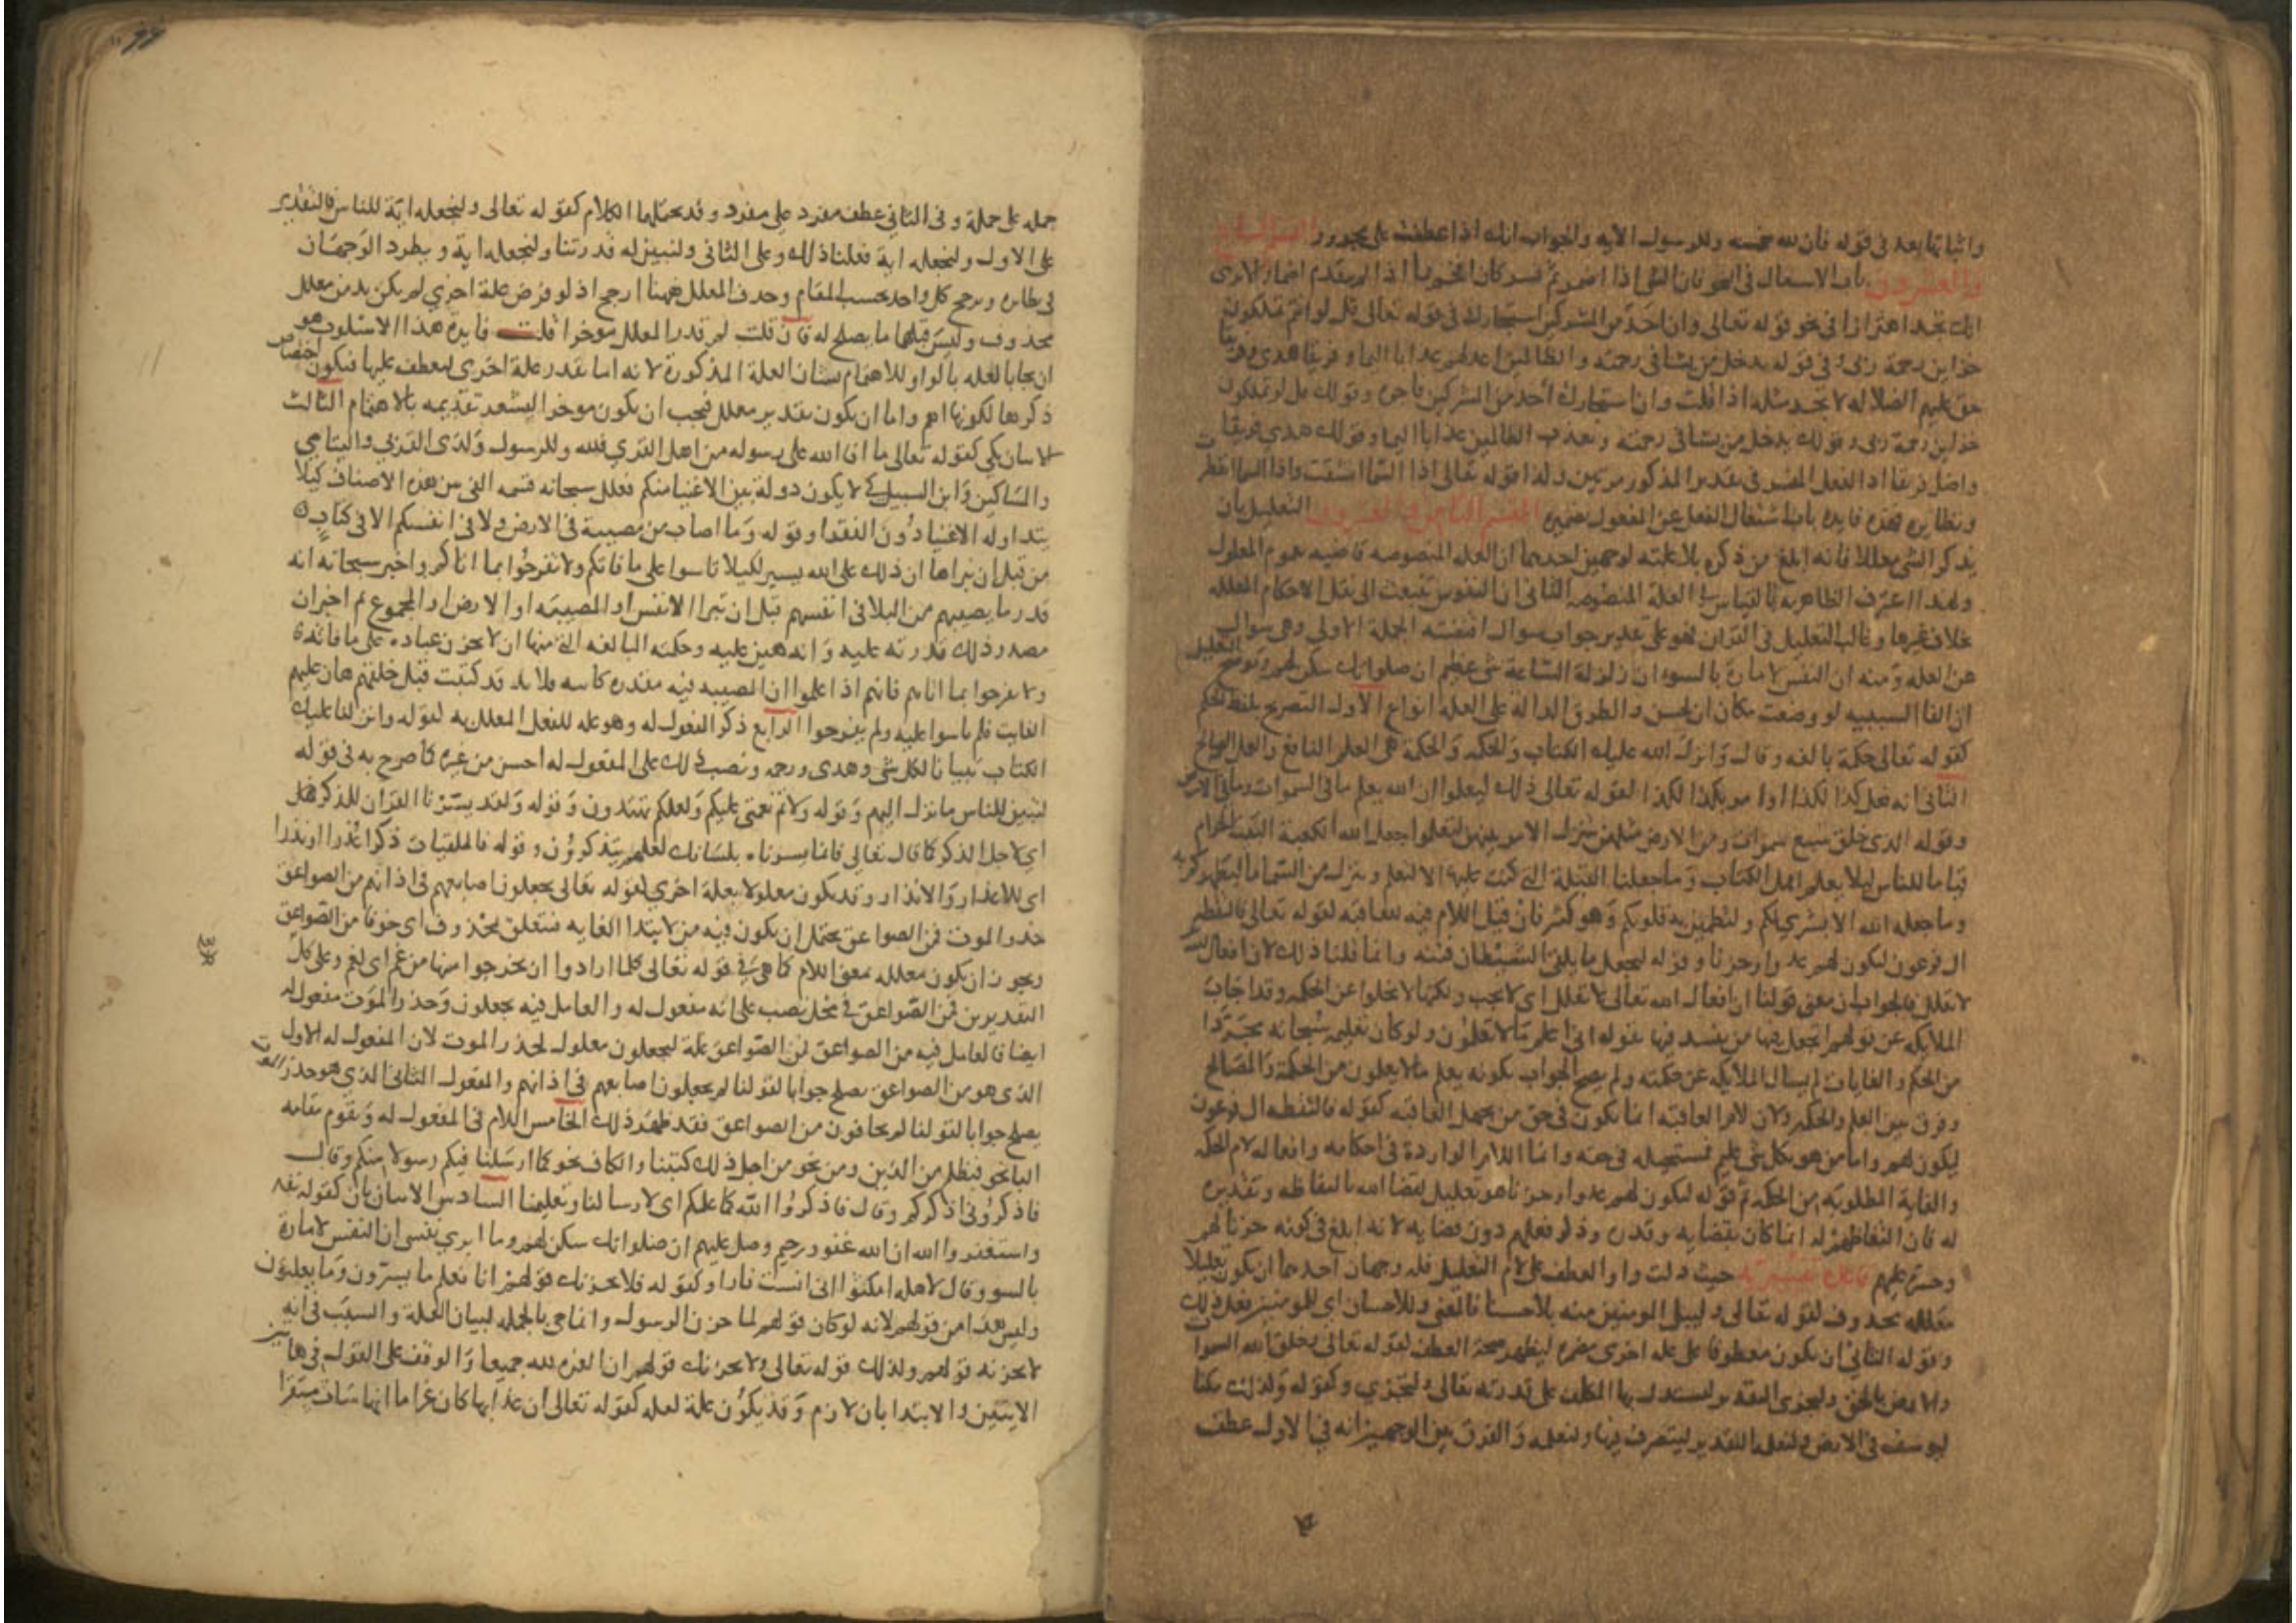 واثباتها بعد في قوله فان لله خمسه وللرسول الايه والجواب انك اذا عطفت على مجرور القسم السابع
والعشرون باب الاشتغال في النحو فان الشي اذا اضمر ثم فسر كان افخم مما اذا لم يتقدم اضمار الا ترى
انك تجد اهتزازا في نحو قوله تعالى وان احد من المشركين استجارك وفي قوله تعالى قل لو انتم تملكون
خزاين رحمة ربي وفي قوله يدخل من يشا في رحمته والظالمين اعد لهم عذابا اليما و فريقا هدى وفريقا
حق عليهم الضلاله لا تجد مثله اذا قلت وان استجارك احد من المشركين فاجره وقولك لو تملكون
خزاين رحمة ربي وقولك يدخل من يشا في رحمته ويعذب الظالمين عذابا اليما وقولك هدى فريقا
واضل فريقا اذ الفعل المفسر في تقدير المذكور مرتين ولذا قوله تعالى اذا السما انشقت واذا السما انفطرت
ونظايره فهذه فايدة باب اشتغال الفعل عن المفعول بضميره القسم الثامن والعشرون التعليل بان
يذكر الشي معللا فانه ابلغ من ذكره بلا علته لوجهين احدهما ان العله المنصوصه قاضيه بعموم المعلول
ولهذا اعترف الظاهريه بالقياس في العلة المنصوصه الثاني ان النفوس تنبعث الى نقل الاحكام المعلله
بخلاف غيرها وغالب التعليل في القران فهو على تقدير جواب سوال اقتضته الجملة الاولى وهي سوال
عن العله ومنه ان النفس لامارة بالسوء ان زلزلة الساعة شي عظيم ان صلواتك سكن لهم وتوضيح التعليل
ان الفا السببيه لو وضعت مكان ان لحسن والطرق الداله على العله انواع الاول التصريح بلفظ الحكم
كقوله تعالى حكمة بالغه وقال وانزل الله عليك الكتاب والحكمه والحكمة هي العلم النافع والعمل الصالح
الثاني انه فعل كذا لكذا او امر بكذا لكذا لقوله تعالى ذلك ليعلموا ان الله يعلم ما في السموات وما في الارض
وقوله الذي خلق سبع سموات ومن الارض مثلهن يتنزل الامر بينهن لتعلموا جعل الله الكعبة البيت الحرام
قياما للناس ليلا يعلم اهل الكتاب وما جعلنا القبلة التي كنت عليها الا لنعلم وينزل من السما ما ليطهركم به
وما جعله الله الا بشرى لكم ولتطمين به قلوبكم وهو كثير فان قيل اللام فيه للعاقبه لقوله تعالى فالتقطه
ال فرعون ليكون لهم عدوا وحزنا وقوله ليجعل ما يلقي الشيطان فتنه وانما قلنا ذلك لان افعال الله
لا تعلل فالجواب ان معنى قولنا ان افعال الله تعالى لا تعلل اي لا تجب ولكنها لا تخلوا عن الحكمه وقد اجاب
الملايكه عن قولهم اتجعل فيها من يفسد فيها بقوله اني اعلم ما لا تعلمون ولو كان فعليه سبحانه مجردا
من الحكم والغايات لم يسال الملايكه عن حكمته ولم يصح الجواب بكونه يعلم ما لا يعلمون من الحكمة والمصالح
وفرق بين العلم والحكم ولان لام العاقبه انما تكون في حق من يجهل العاقبه كقوله فالتقطه ال فرعون
ليكون لهم واما من هو بكل شي عليم فمستحيله في حقه وانما اللام الواردة في احكامه وافعاله لام الحكمه
والغاية المطلوبة من الحكمه ثم قوله ليكون لهم عدوا وحزنا هو تعليل لقضا الله بالتقاطه وتقديره
له فان التقاطهم له انما كان بقضايه وقدره وذكر فعلهم دون قضايه لانه ابلغ في كونه حزنا لهم
وحسرة عليهم قاعدة تفسيرية حيث دلت واو العطف على لام التعليل فله وجهان احدهما ان يكون تعليلا
معلله محذوف لقوله تعالى وليبلي المومنين منه بلاء حسنا فالمعنى وللاحسان اي للمومنين فعل ذلك
وقوله الثاني ان يكون معطوفا على عله اخرى مضمره ليظهر صحة العطف لقوله تعالى وخلق الله السموات
والارض بالحق ولتجزى التقدير ليستدل بها المكلف على قدرته تعالى ولتجزى وكقوله وكذلك مكنا
ليوسف في الارض ولنعلمه التقدير ليتصرف فيها ولنعلمه والفرق بين الوجهين انه في الاول عطف
جمله على جملة وفي الثاني عطف مفرد على مفرد وقد يحتملهما الكلام كقوله تعالى ولنجعله اية للناس فالتقدير
على الاول ولنجعله اية فعلنا ذلك وعلى الثاني ولنبين له قدرتنا ولنجعله اية ويطرد الوجهان
في نظايره ويرجح كل واحد بحسب المقام وحذف المعلل ههنا ارجح اذ لو فرض علة اخرى لم يكن بد من معلل
محذوف وليس قبلها ما يصلح له فان قلت لم قدر المعلل موخرا قلت فايدة هذا الاسلوب هو
ان يجا بالعله بالواو للاهتمام بشان العلة المذكورة لانه اما يقدر علة اخرى ليعطف عليها فيكون اختصاص
ذكرها لكونها اهم واما ان يكون بتقدير معلل فيجب ان يكون موخرا ليشعر تقديمه بالاهتمام الثالث
الاتيان بكي كقوله تعالى ما افا الله على رسوله من اهل القرى فلله وللرسول ولذى القربى واليتامى
والمساكين وابن السبيل كي لا يكون دولة بين الاغنيا منكم فعلل سبحانه قسمه الفي بين هذه الاصناف كيلا
يتداوله الاغنيا دون الفقرا وقوله وما اصاب من مصيبة في الارض ولا في انفسكم الا في كتاب
من قبل ان نبراها ان ذلك على الله يسير لكيلا تاسوا على ما فاتكم ولا تفرحوا بما اتاكم واخبر سبحانه انه
قدر ما يصيبهم من البلا في انفسهم قبل ان تبرا الانفس او المصيبه او الارض او المجموع ثم اخبر ان
مصدر ذلك قدرته عليه وانه هين عليه وحكمته البالغه التي منها ان لا يحزن عباده على ما فاتهم
ولا يفرحوا بما اتاهم فانهم اذا علموا ان المصيبه فيه مقدره كاينه ولا بد قد كتبت قبل خلقهم هان عليهم
الفايت فلم ياسوا عليه ولم يفرحوا الرابع ذكر المفعول له وهو عله للفعل المعلل به لقوله وانزلنا عليك
الكتاب تبيانا لكل شي وهدى ورحمه ونصب ذلك على المفعول له احسن من غيره كما صرح به في قوله
لتبين للناس ما نزل اليهم وقوله ولاتم نعمتي عليكم ولعلكم تهتدون وقوله ولقد يسرنا القران للذكر فهل
اي لاجل الذكر كما قال تعالى فانما يسرناه بلسانك لعلهم يتذكرون وقوله فالملقيات ذكرا عذرا او نذرا
اي للاعذار والانذار وقد يكون معلولا بعلة اخرى لقوله تعالى يجعلون اصابعهم في اذانهم من الصواعق
حذر الموت فمن الصواعق يحتمل ان يكون فيه من لابتدا الغايه فتتعلق بمحذوف اي خوفا من الصواعق
ويجوز ان يكون معلله بمعنى اللام كما هي في قوله تعالى كلما ارادوا ان يخرجوا منها من غم اي لغم وعلى كل
التقديرين فمن الصواعق في محل نصب على انه مفعول له والعامل فيه يجعلون وحذر الموت مفعول له
ايضا فالعامل فيه من الصواعق فمن الصواعق علة ليجعلون معلول لحذر الموت لان المفعول له الاول
الذي هو من الصواعق يصلح جوابا لقولنا لم يجعلون اصابعهم في اذانهم والمفعول الثاني الذي هو حذر الموت
يصلح جوابا لقولنا لم يخافون من الصواعق فقد ظهر ذلك الخامس اللام في المفعول له وتقوم مقامه
البا نحو فبظلم من الذين ومن نحو من اجل ذلك كتبنا والكاف نحو كما ارسلنا فيكم رسولا منكم وقال
فاذكروني اذكركم وقال فاذكروا الله كما علمكم اي لارسالنا وتعليمنا السادس الاتيان بان كقوله تعالى
واستغفروا الله ان الله غفور رحيم وصل عليهم ان صلواتك سكن لهم وما ابري نفسي ان النفس لامارة
بالسوء وقال لاهله امكثوا اني انست نارا وكقوله فلا يحزنك قولهم انا نعلم ما يسرون وما يعلنون
وليس هذا من قولهم لانه لو كان قولهم لما حزن الرسول وانما جي بالجمله لبيان العلة والسبب في انه
لا يحزنه قولهم ولذلك قوله تعالى ولا يحزنك قولهم ان العزه لله جميعا والوقف على القول في هاتين
الايتين والابتدا بان لازم وقد يكون علة لعله كقوله تعالى ان عذابها كان غراما انها سات مستقرا